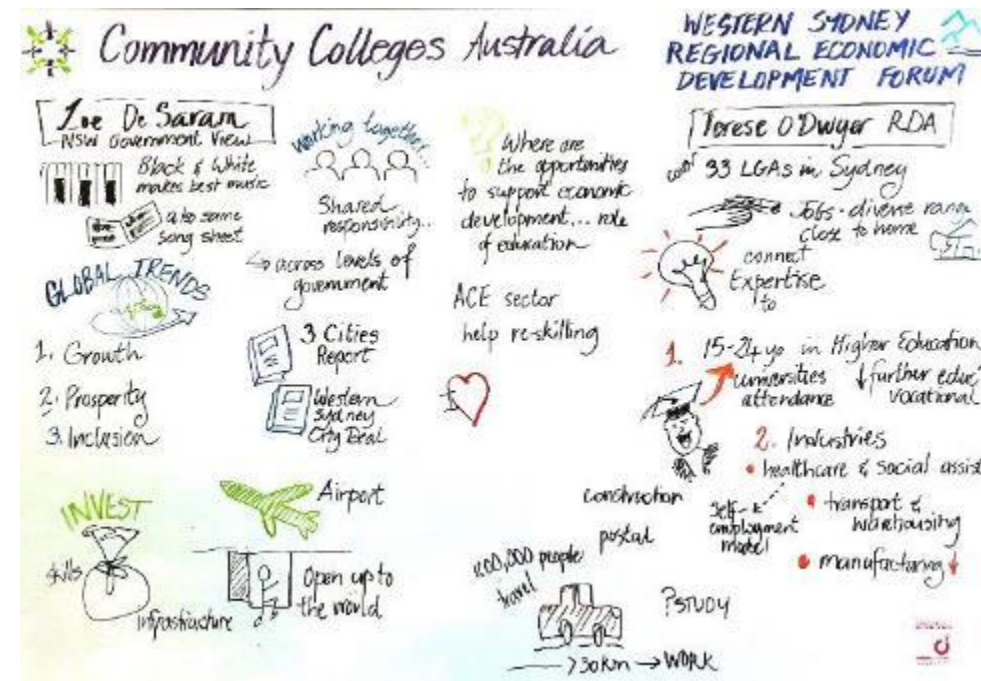 Community Colleges Australia
WESTERN SYDNEY
REGIONAL ECONOMIC
DEVELOPMENT FORUM
Zoe De Saram
NSW Government View
Black & White
makes best music
also same
song sheet
GLOBAL TRENDS
1. Growth
2. Prosperity
3. Inclusion
INVEST
skills
infrastructure
Working together...
Shared
responsibility...
↳ across levels of
government
3 Cities
Report
Western
Sydney
City Deal
Airport
Open up to
the world
?
Where are
the opportunities
to support economic
development... role
of education
ACE sector
help re-skilling
Terese O'Dwyer RDA
33 LGAs in Sydney
Jobs - diverse range
close to home
connect
Expertise
to
1. 15-24 yo in Higher Education
universities
attendance
↓ further educ'
vocational
2. Industries
• healthcare & social assist
• transport &
warehousing
• manufacturing ↓
self-
employment
model
construction
postal
200,000 people
travel
>30km → WORK
?STUDY